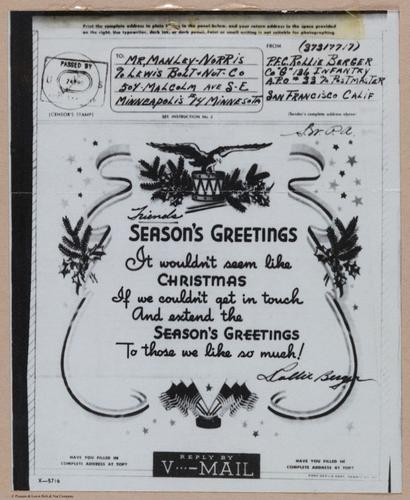 Print the complete address in plain letters in the panel below, and your return address in the space provided
on the right. Use typewriter, dark ink, or dark pencil. Faint or small writing is not suitable for photographing.
PASSED BY
U S
(CENSOR'S STAMP)
TO:
MR. MANLEY-NORRIS
% LEWIS BOLT-NUT-CO
504-MALCOLM AVE S-E.
MINNEAPOLIS #14 MINNESOTA
SEE INSTRUCTION No. 2
FROM
(37317717)
P.F.C. ROLLIE BERGER
Co "G" 136 INFANTRY
A.P.O. #33 % POSTMASTER
SAN FRANCISCO CALIF
(Sender's complete address above)
Friends
SEASON'S GREETINGS
It wouldn't seem like
CHRISTMAS
If we couldn't get in touch
And extend the
SEASON'S GREETINGS
To those we like so much!
Rollie Berger
HAVE YOU FILLED IN
COMPLETE ADDRESS AT TOP?
REPLY BY
V···-MAIL
HAVE YOU FILLED IN
COMPLETE ADDRESS AT TOP?
X-5716